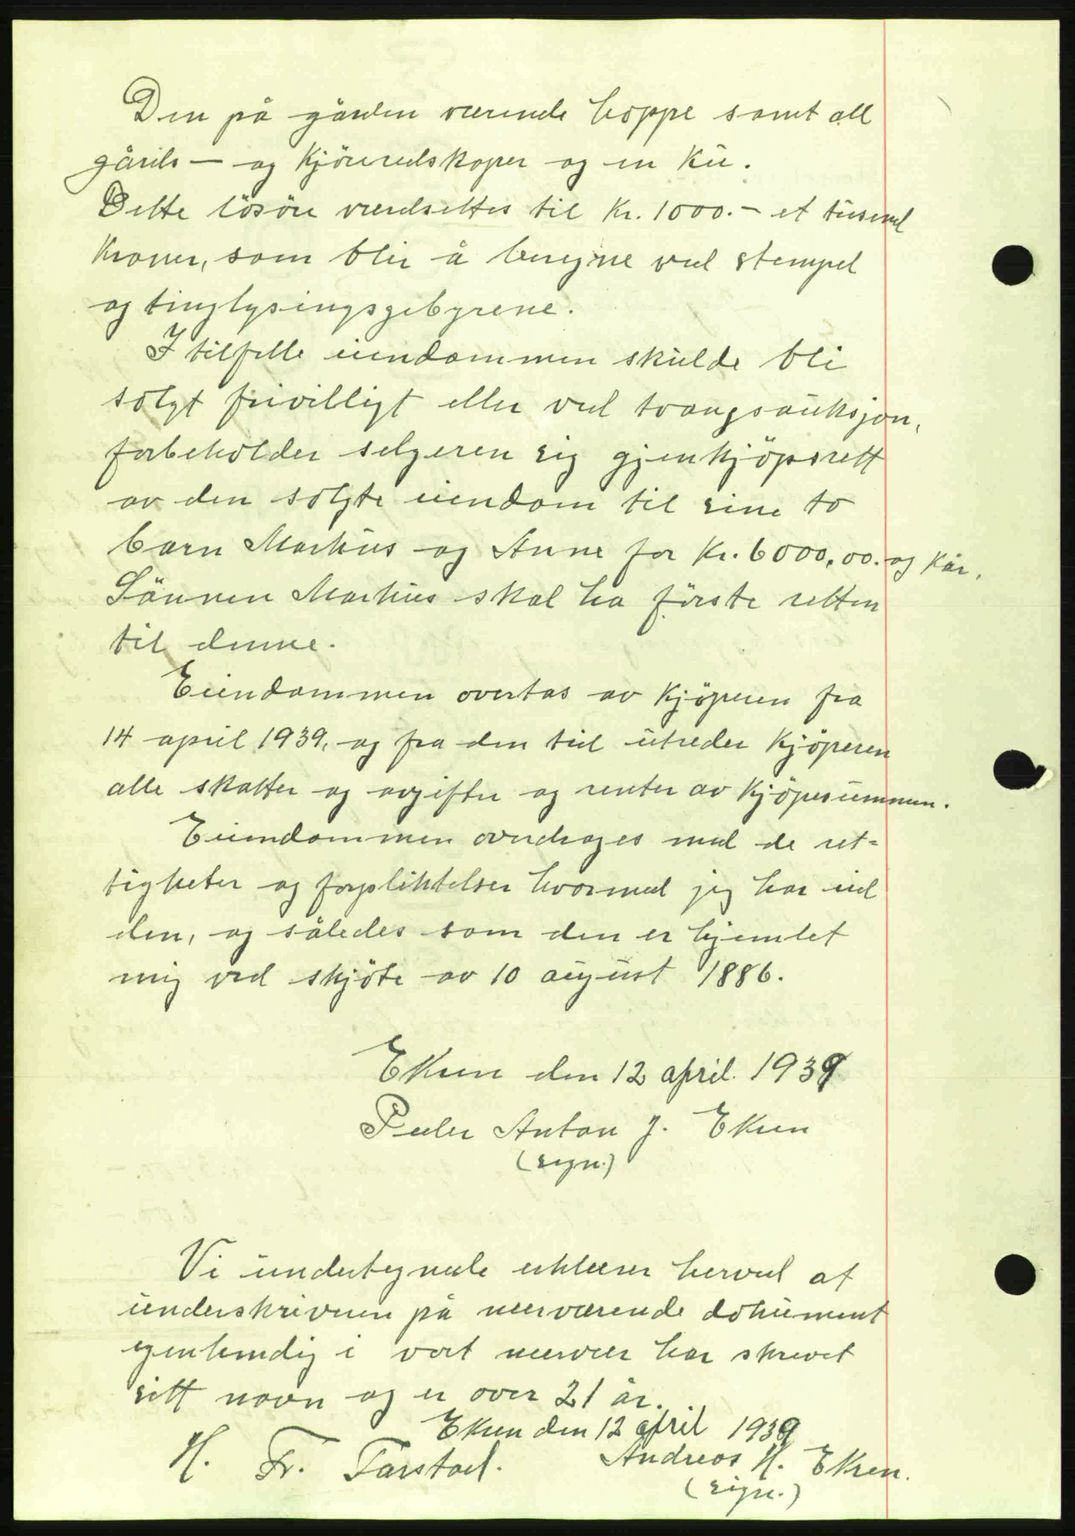 Den på gården værende hoppe samt all
gårds- og kjöreredskaper og en ku.
Dette lösöre verdsettes til kr. 1000.- et tusend
kroner, som blir å beregne ved stempel
og tinglysingsgebyrene.
I tilfelle eiendommen skulde bli
solgt frivilligt eller ved tvangsauksjon,
forbeholder selgeren sig gjenkjöpsrett
av den solgte eiendom til sine to
barn Markus og Anne for kr. 6000,00. og kår.
Sönnen Markus skal ha förste retten
til denne.
Eiendommen overtas av kjöperen fra
14 april 1939, og fra den tid utreder kjöperen
alle skatter og avgifter og renter av kjöpesummen.
Eiendommen overdrages med de ret=
tigheter og forpliktelser hvormed jeg har eid
den, og således som den er hjemlet
mig ved skjöte av 10 august 1886.
Ekren den 12 april 1939
Peder Anton J. Ekren
(sign.)
Vi undertegnede erklærer herved at
underskriveren på nærværende dokument
egenhendig i vort nærvær har skrevet
sitt navn og er over 21 år.
Ekren den 12 april 1939
H. Fr. Tarstad. Andreas H. Ekren.
(sign.)